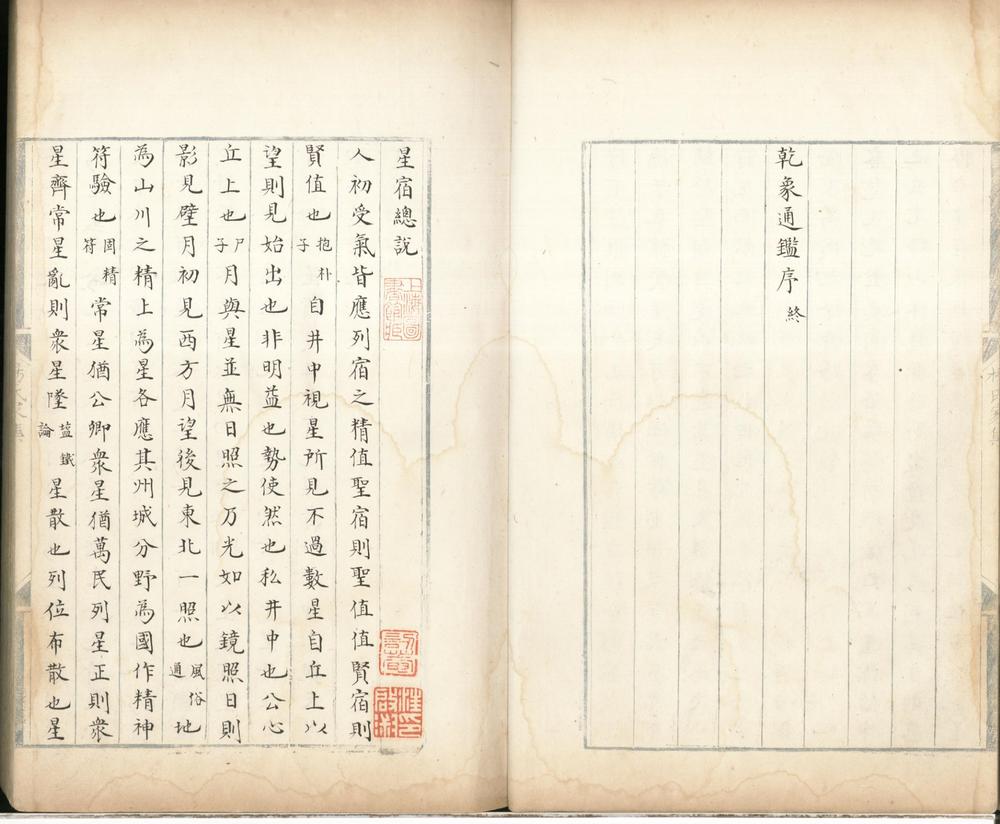 乾象通鑑序終
星宿總說
人初受氣皆應列宿之精值聖宿則聖值值賢宿則
賢值也抱朴子自井中視星所見不過數星自丘上以
望則見始出也非明益也勢使然也私井中也公心
丘上也尸子月與星並無日照之乃光如以鏡照日則
影見壁月初見西方月望後見東北一照也風俗通地
為山川之精上為星各應其州城分野為國作精神
符驗也周精符常星猶公卿衆星猶萬民列星正則衆
星齊常星亂則衆星墜盐鐵論星散也列位布散也星